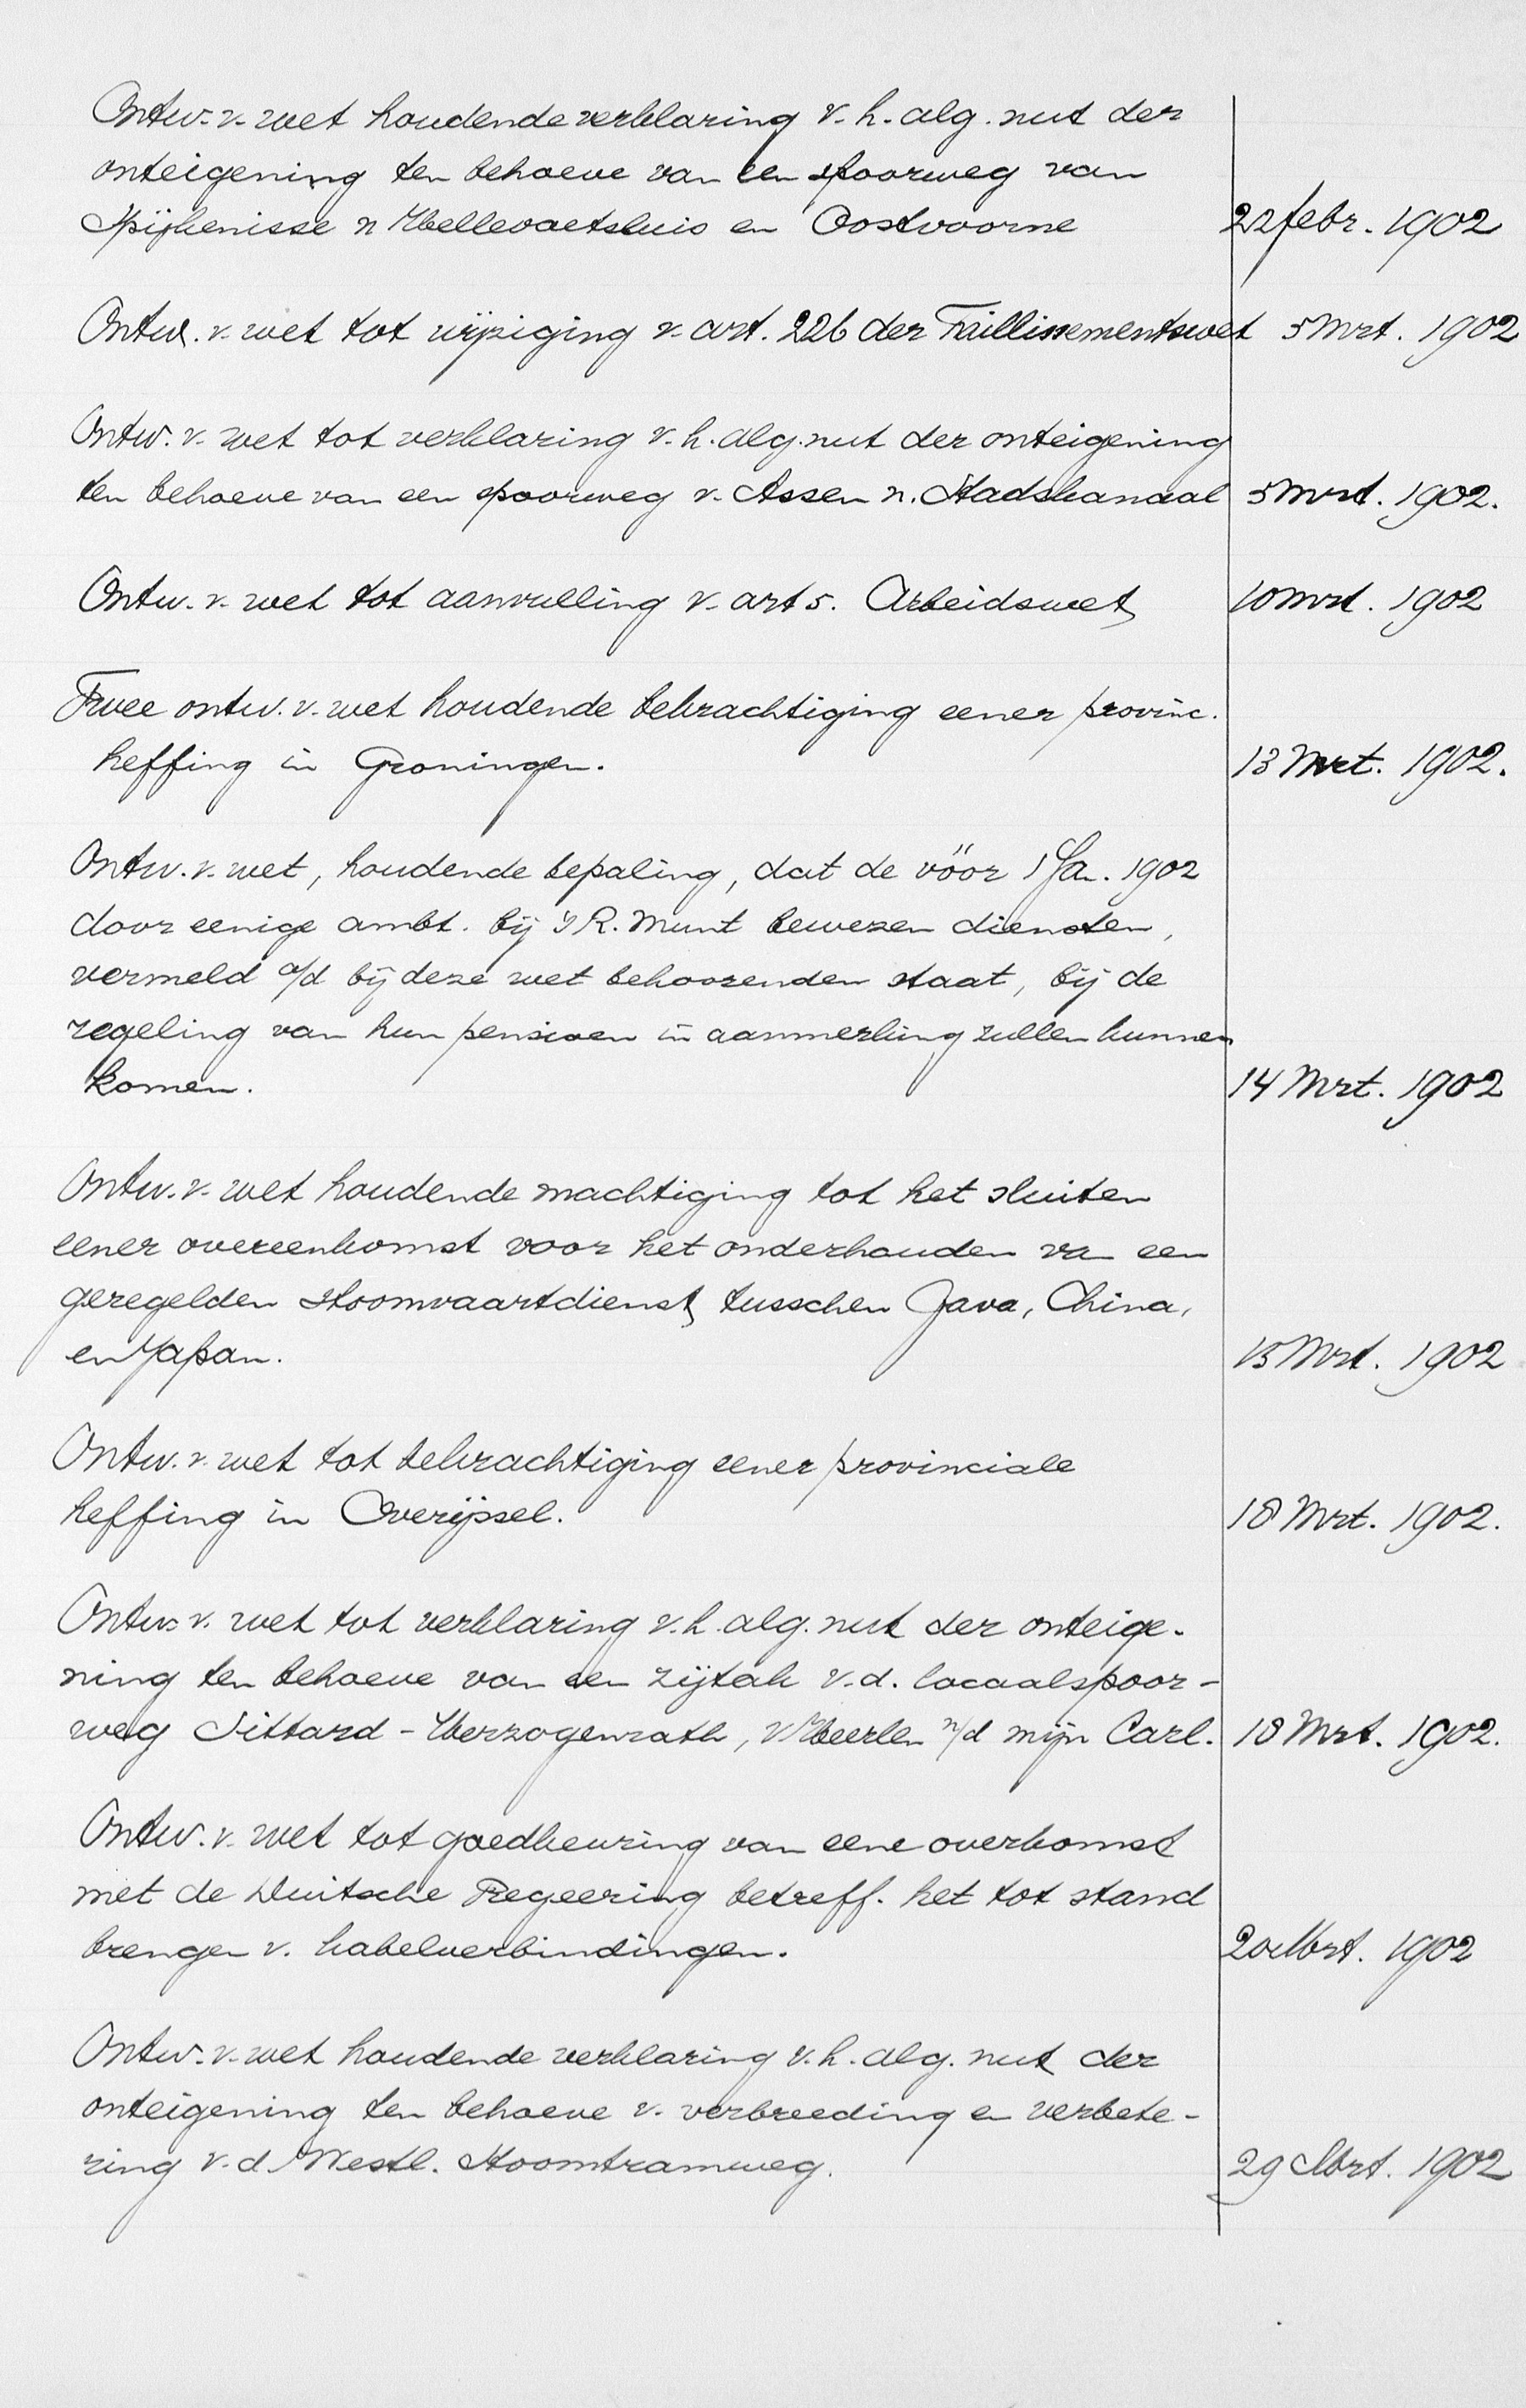 Ontw. v. wet houdende verklaring v. h. alg. nut der
onteigening ten behoeve van een spoorweg van
Spijkenisse n Hellevoetsluis en Oostvoorne 22 febr. 1902
Ontw. v. wet tot wijziging v. art. 226 der Faillissementswet 5 Mrt. 1902
Ontw. v. wet tot verklaring v. h. alg. nut der onteigening
ten behoeve van een spoorweg v. Assen n. Stadskanaal 5 Mrt. 1902.
Ontw. v. wet tot aanvulling v. art 5. Arbeidswet 10 Mrt. 1902
Twee ontw. v. wet houdende bekrachtiging eener provinc.
heffing in Groningen. 13 Mrt. 1902.
Ontw. v. wet, houdende bepaling, dat de vóór 1 Ja. 1902
door eenige ambt. bij 's R. Munt bewezen diensten,
vermeld o/d bij deze wet behoorenden staat, bij de
regeling van hun pensioen in aanmerking zullen kunnen
komen. 14 Mrt. 1902
Ontw. v. wet houdende machtiging tot het sluiten
eener overeenkomst voor het onderhouden va een
geregelden stoomvaartdienst tusschen Java, China,
en Japan. 15 Mrt. 1902
Ontw. v. wet tot bekrachtiging eener provinciale
heffing in Overijssel. 18 Mrt. 1902.
Ontw. v. wet tot verklaring v. h. alg. nut der onteige-
ning ten behoeve van een zijtak v. d. locaalspoor-
weg Sittard - Herzogenrath, v Heerlen n/d mijn Carl. 18 Mrt. 1902.
Ontw. v. wet tot goedkeuring van eene overkomst
met de Duitsche Regeering betreff. het tot stand
brengen v. kabelverbindingen. 20 Mrt. 1902
Ontw. v. wet houdende verklaring v. h. alg. nut der
onteigening ten behoeve v. verbreeding en verbete-
ring v. d. Westl. Stoomtramweg. 29 Mrt. 1902